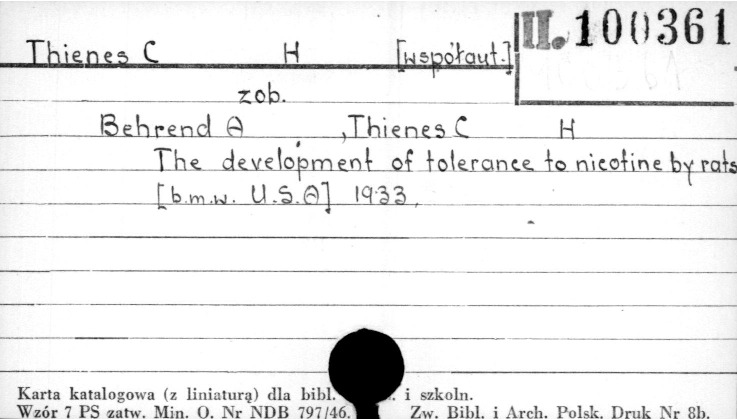 Thienes C H [współaut.] II. 100361
zob.
Behrend A , Thienes C H
The development of tolerance to nicotine by rats
[b.m.w. U.S.A] 1933.
Karta katalogowa (z liniaturą) dla bibl. i szkoln.
Wzór 7 PS zatw. Min. O. Nr NDB 797/46. Zw. Bibl. i Arch. Polsk. Druk Nr 8b.